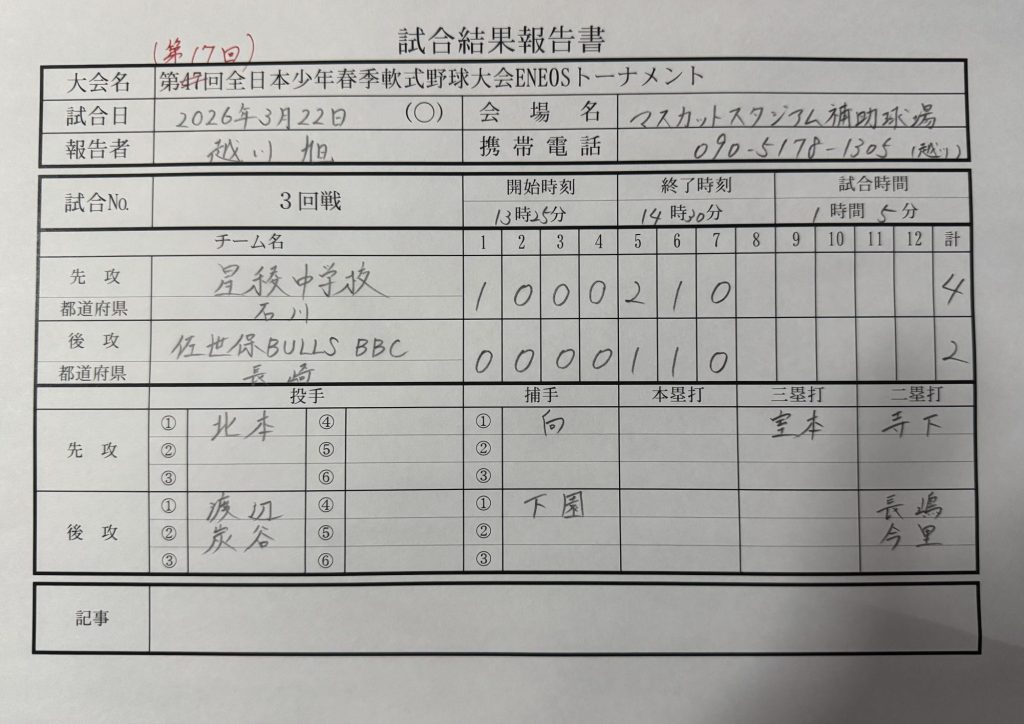 試合結果報告書
(第17回)
大会名 第47回全日本少年春季軟式野球大会ENEOSトーナメント
試合日 2026年3月22日 (〇) 会場名 マスカットスタジアム補助球場
報告者 越川 旭 携帯電話 090-5178-1305 (越川)
試合No. 3回戦 開始時刻 終了時刻 試合時間
13時25分 14時30分 1時間 5分
チーム名 1 2 3 4 5 6 7 8 9 10 11 12 計
先攻 星稜中学校 1 0 0 0 2 1 0 4
都道府県 石川
後攻 佐世保BULLS BBC 0 0 0 0 1 1 0 2
都道府県 長崎
投手 捕手 本塁打 三塁打 二塁打
先攻 ① 北本 ④ ① 向 室本 寺下
② ⑤ ②
③ ⑥ ③
後攻 ① 渡辺 ④ ① 下園 長嶋
② 炭谷 ⑤ ② 今里
③ ⑥ ③
記事